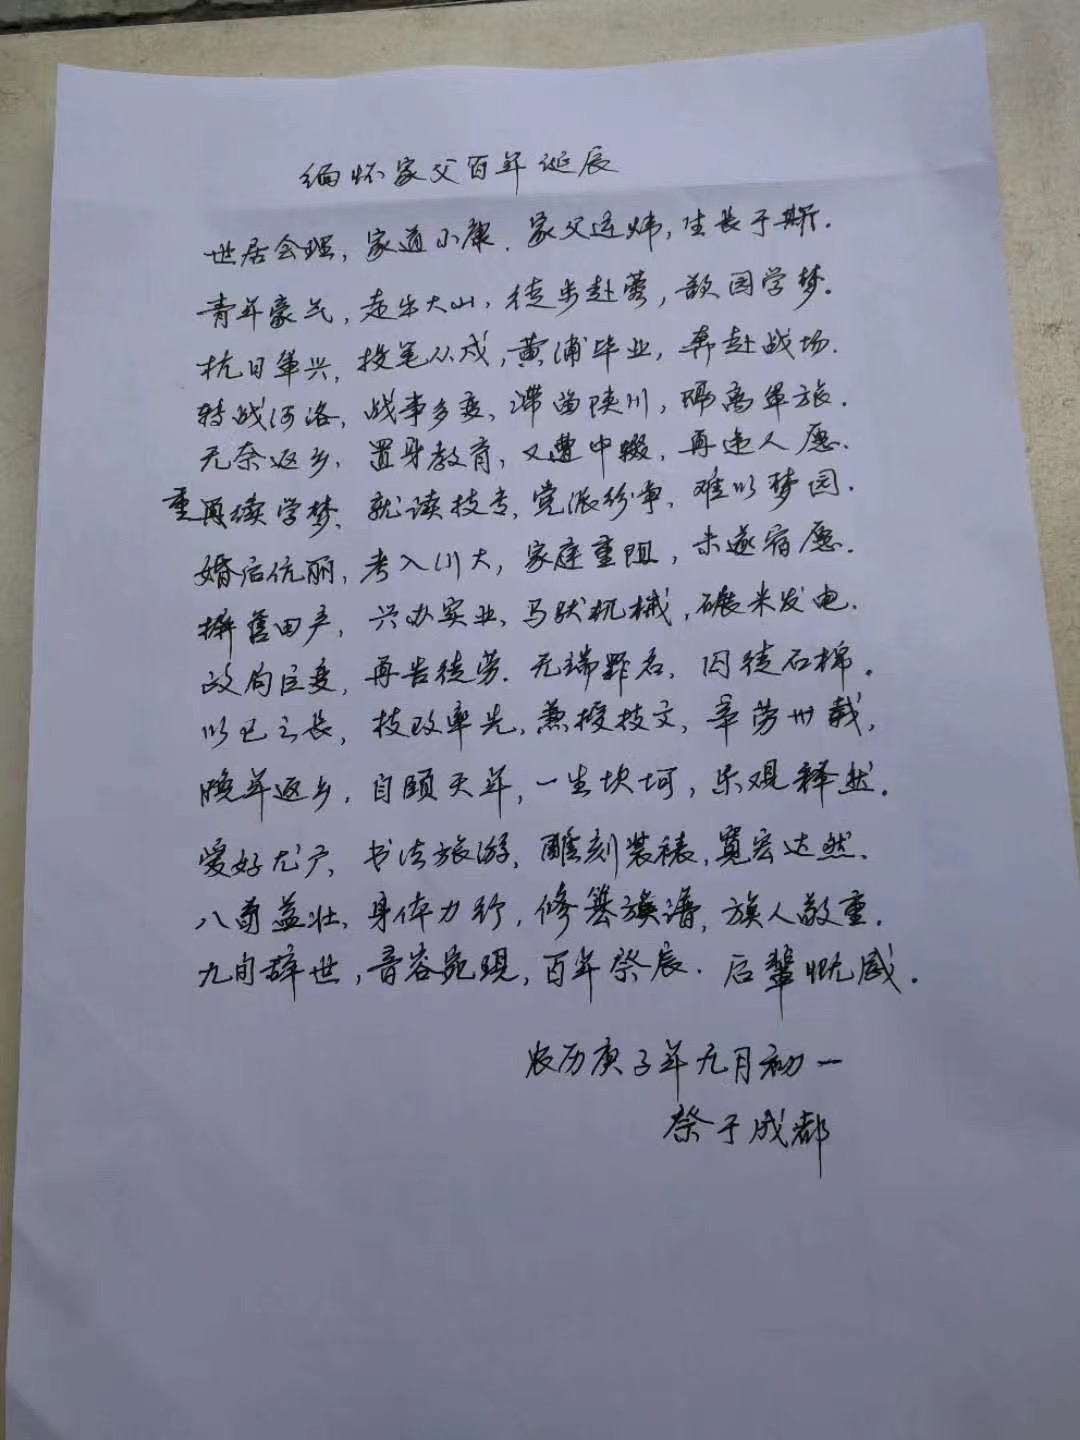 缅怀家父百年诞辰
世居会理，家道小康．家父连炜，生长于斯．
青年豪气，走出大山，徒步赴蓉，欲圆学梦．
抗日军兴，投笔从戎，黄浦毕业，奔赴战场．
转战河洛，战事多变，滞留陕川，隔离军旅．
无奈返乡，置身教育，又遭中辍，再违人愿．
重再续学梦，就读技专，党派纷争，难以梦园．
婚后伉丽，考入川大，家庭重阻，未遂宿愿．
摒售田产，兴办实业，马驮机械，碾米发电．
政局巨变，再告徒劳．无端罪名，囚徒石棉．
以己之长，技改率先，兼授技文，辛劳卅载，
晚年返乡，自颐天年，一生坎坷，乐观释然．
爱好尤广，书法旅游，雕刻装裱，寛宏达然．
八旬益壮，身体力行，修篡族谱，族人敬重．
九旬辞世，音容宛现，百年祭辰．后辈慨感．
农历庚子年九月初一
祭于成都